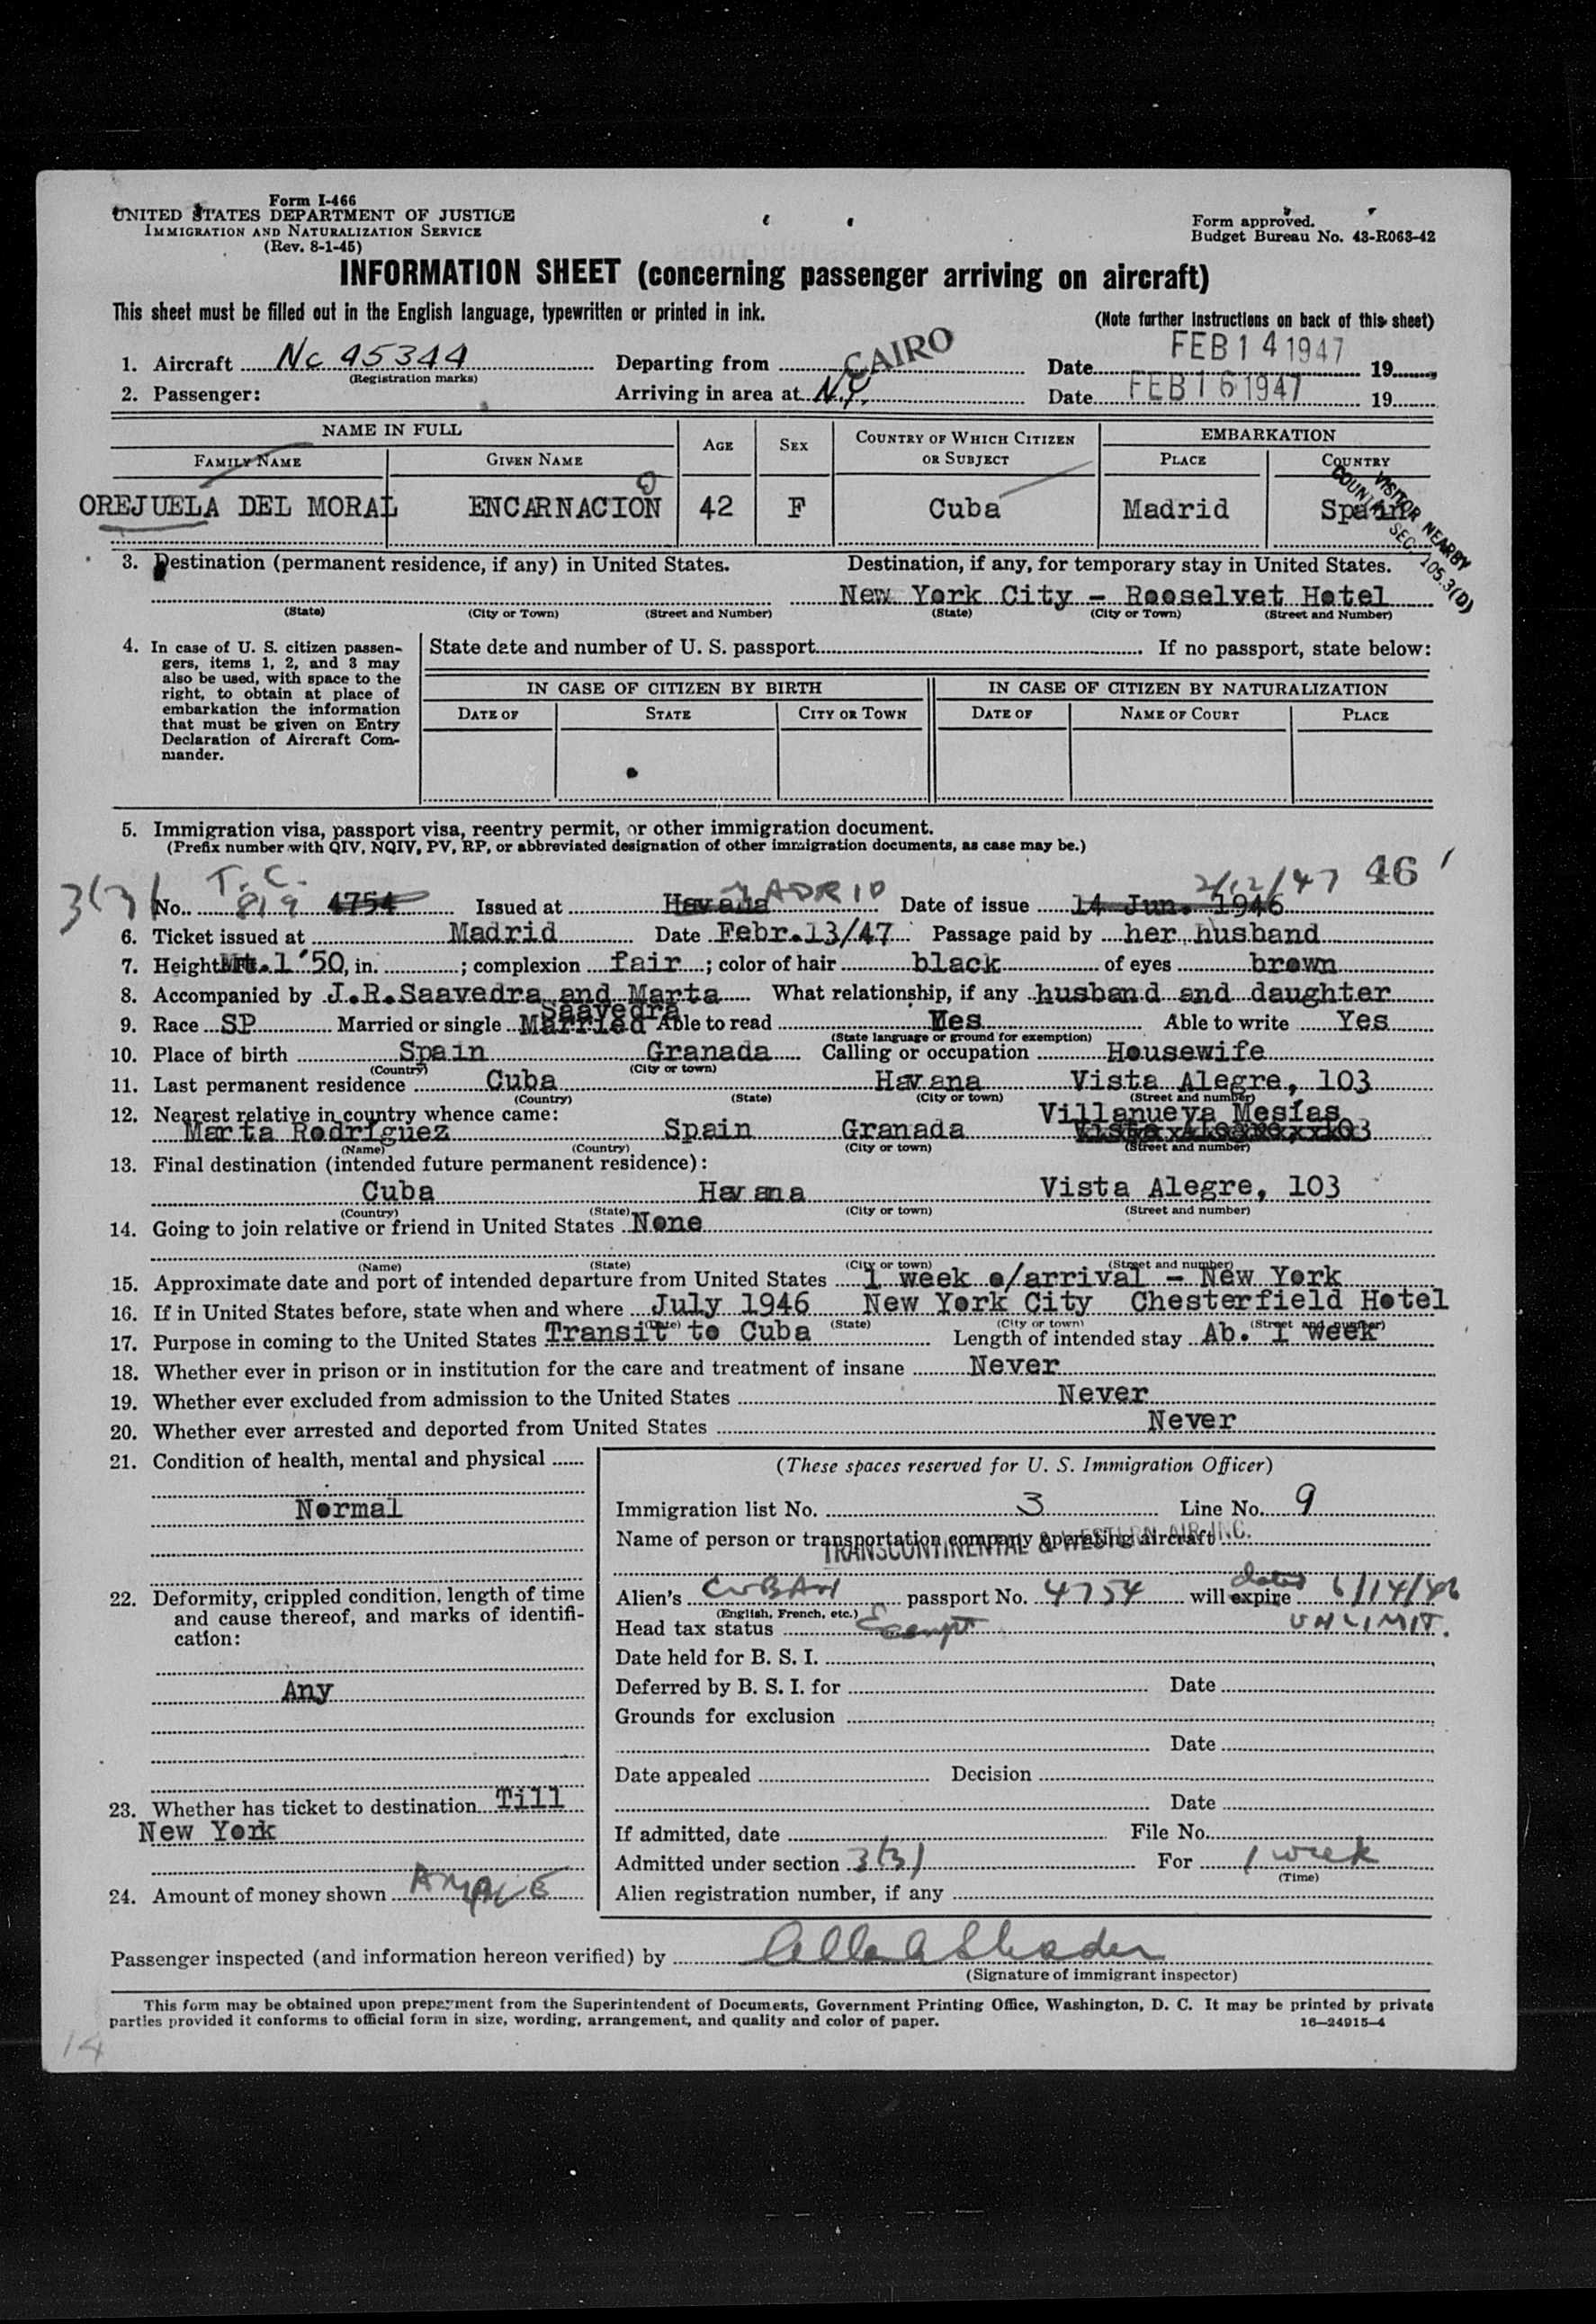 Form I-466
UNITED STATES DEPARTMENT OF JUSTICE
IMMIGRATION AND NATURALIZATION SERVICE
(Rev. 8-1-45)
Form approved.
Budget Bureau No. 43-R063-42
INFORMATION SHEET (concerning passenger arriving on aircraft)
This sheet must be filled out in the English language, typewritten or printed in ink.
(Note further instructions on back of this sheet)
1. Aircraft Nc 45344 Departing from CAIRO Date FEB 14 1947 19
(Registration marks)
2. Passenger: Arriving in area at N.Y. Date FEB 16 1947 19
NAME IN FULL AGE SEX COUNTRY OF WHICH CITIZEN OR SUBJECT EMBARKATION
FAMILY NAME GIVEN NAME PLACE COUNTRY
OREJUELA DEL MORAL ENCARNACION 42 F Cuba Madrid Spain
VISITOR NEARBY
COUNTRY SEC. 105.3(D)
3. Destination (permanent residence, if any) in United States. Destination, if any, for temporary stay in United States.
New York City - Rooselvet Hotel
(State) (City or Town) (Street and Number) (State) (City or Town) (Street and Number)
4. In case of U. S. citizen passengers, items 1, 2, and 3 may also be used, with space to the right, to obtain at place of embarkation the information that must be given on Entry Declaration of Aircraft Commander.
State date and number of U. S. passport If no passport, state below:
IN CASE OF CITIZEN BY BIRTH IN CASE OF CITIZEN BY NATURALIZATION
DATE OF STATE CITY OR TOWN DATE OF NAME OF COURT PLACE
5. Immigration visa, passport visa, reentry permit, or other immigration document.
(Prefix number with QIV, NQIV, PV, RP, or abbreviated designation of other immigration documents, as case may be.)
46
3(3) T.C. MADRID 2/12/47
No. 819 4754 Issued at Havana Date of issue 14 Jun. 1946
6. Ticket issued at Madrid Date Febr.13/47 Passage paid by her husband
7. Height Mt.1'50, in. ; complexion fair ; color of hair black of eyes brown
8. Accompanied by J.R.Saavedra and Marta Saavedra What relationship, if any husband and daughter
9. Race SP Married or single Married Able to read Yes Able to write Yes
(State language or ground for exemption)
10. Place of birth Spain Granada Calling or occupation Housewife
(Country) (City or town)
11. Last permanent residence Cuba Havana Vista Alegre, 103
(Country) (State) (City or town) (Street and number)
12. Nearest relative in country whence came: Villanueva Mesías
Marta Rodríguez Spain Granada Vista Alegre, 103
(Name) (Country) (City or town) (Street and number)
13. Final destination (intended future permanent residence):
Cuba Havana Vista Alegre, 103
(Country) (State) (City or town) (Street and number)
14. Going to join relative or friend in United States None
(Name) (State) (City or town) (Street and number)
15. Approximate date and port of intended departure from United States 1 week o/arrival - New York
16. If in United States before, state when and where July 1946 New York City Chesterfield Hotel
(Date) (State) (City or town) (Street and number)
17. Purpose in coming to the United States Transit to Cuba Length of intended stay Ab. 1 week
18. Whether ever in prison or in institution for the care and treatment of insane Never
19. Whether ever excluded from admission to the United States Never
20. Whether ever arrested and deported from United States Never
21. Condition of health, mental and physical
Normal
22. Deformity, crippled condition, length of time and cause thereof, and marks of identification:
Any
23. Whether has ticket to destination Till
New York
24. Amount of money shown AMPLE
(These spaces reserved for U. S. Immigration Officer)
Immigration list No. 3 Line No. 9
Name of person or transportation company operating aircraft
TRANSCONTINENTAL & WESTERN AIR INC.
Alien's CUBAN passport No. 4754 will expire dated 6/14/46
(English, French, etc.)
Head tax status Exempt UNLIMIT.
Date held for B. S. I.
Deferred by B. S. I. for Date
Grounds for exclusion
Date
Date appealed Decision
Date
If admitted, date File No.
Admitted under section 3(3) For 1 week
(Time)
Alien registration number, if any
Passenger inspected (and information hereon verified) by
(Signature of immigrant inspector)
This form may be obtained upon prepayment from the Superintendent of Documents, Government Printing Office, Washington, D. C. It may be printed by private
parties provided it conforms to official form in size, wording, arrangement, and quality and color of paper. 16—24915-4
14